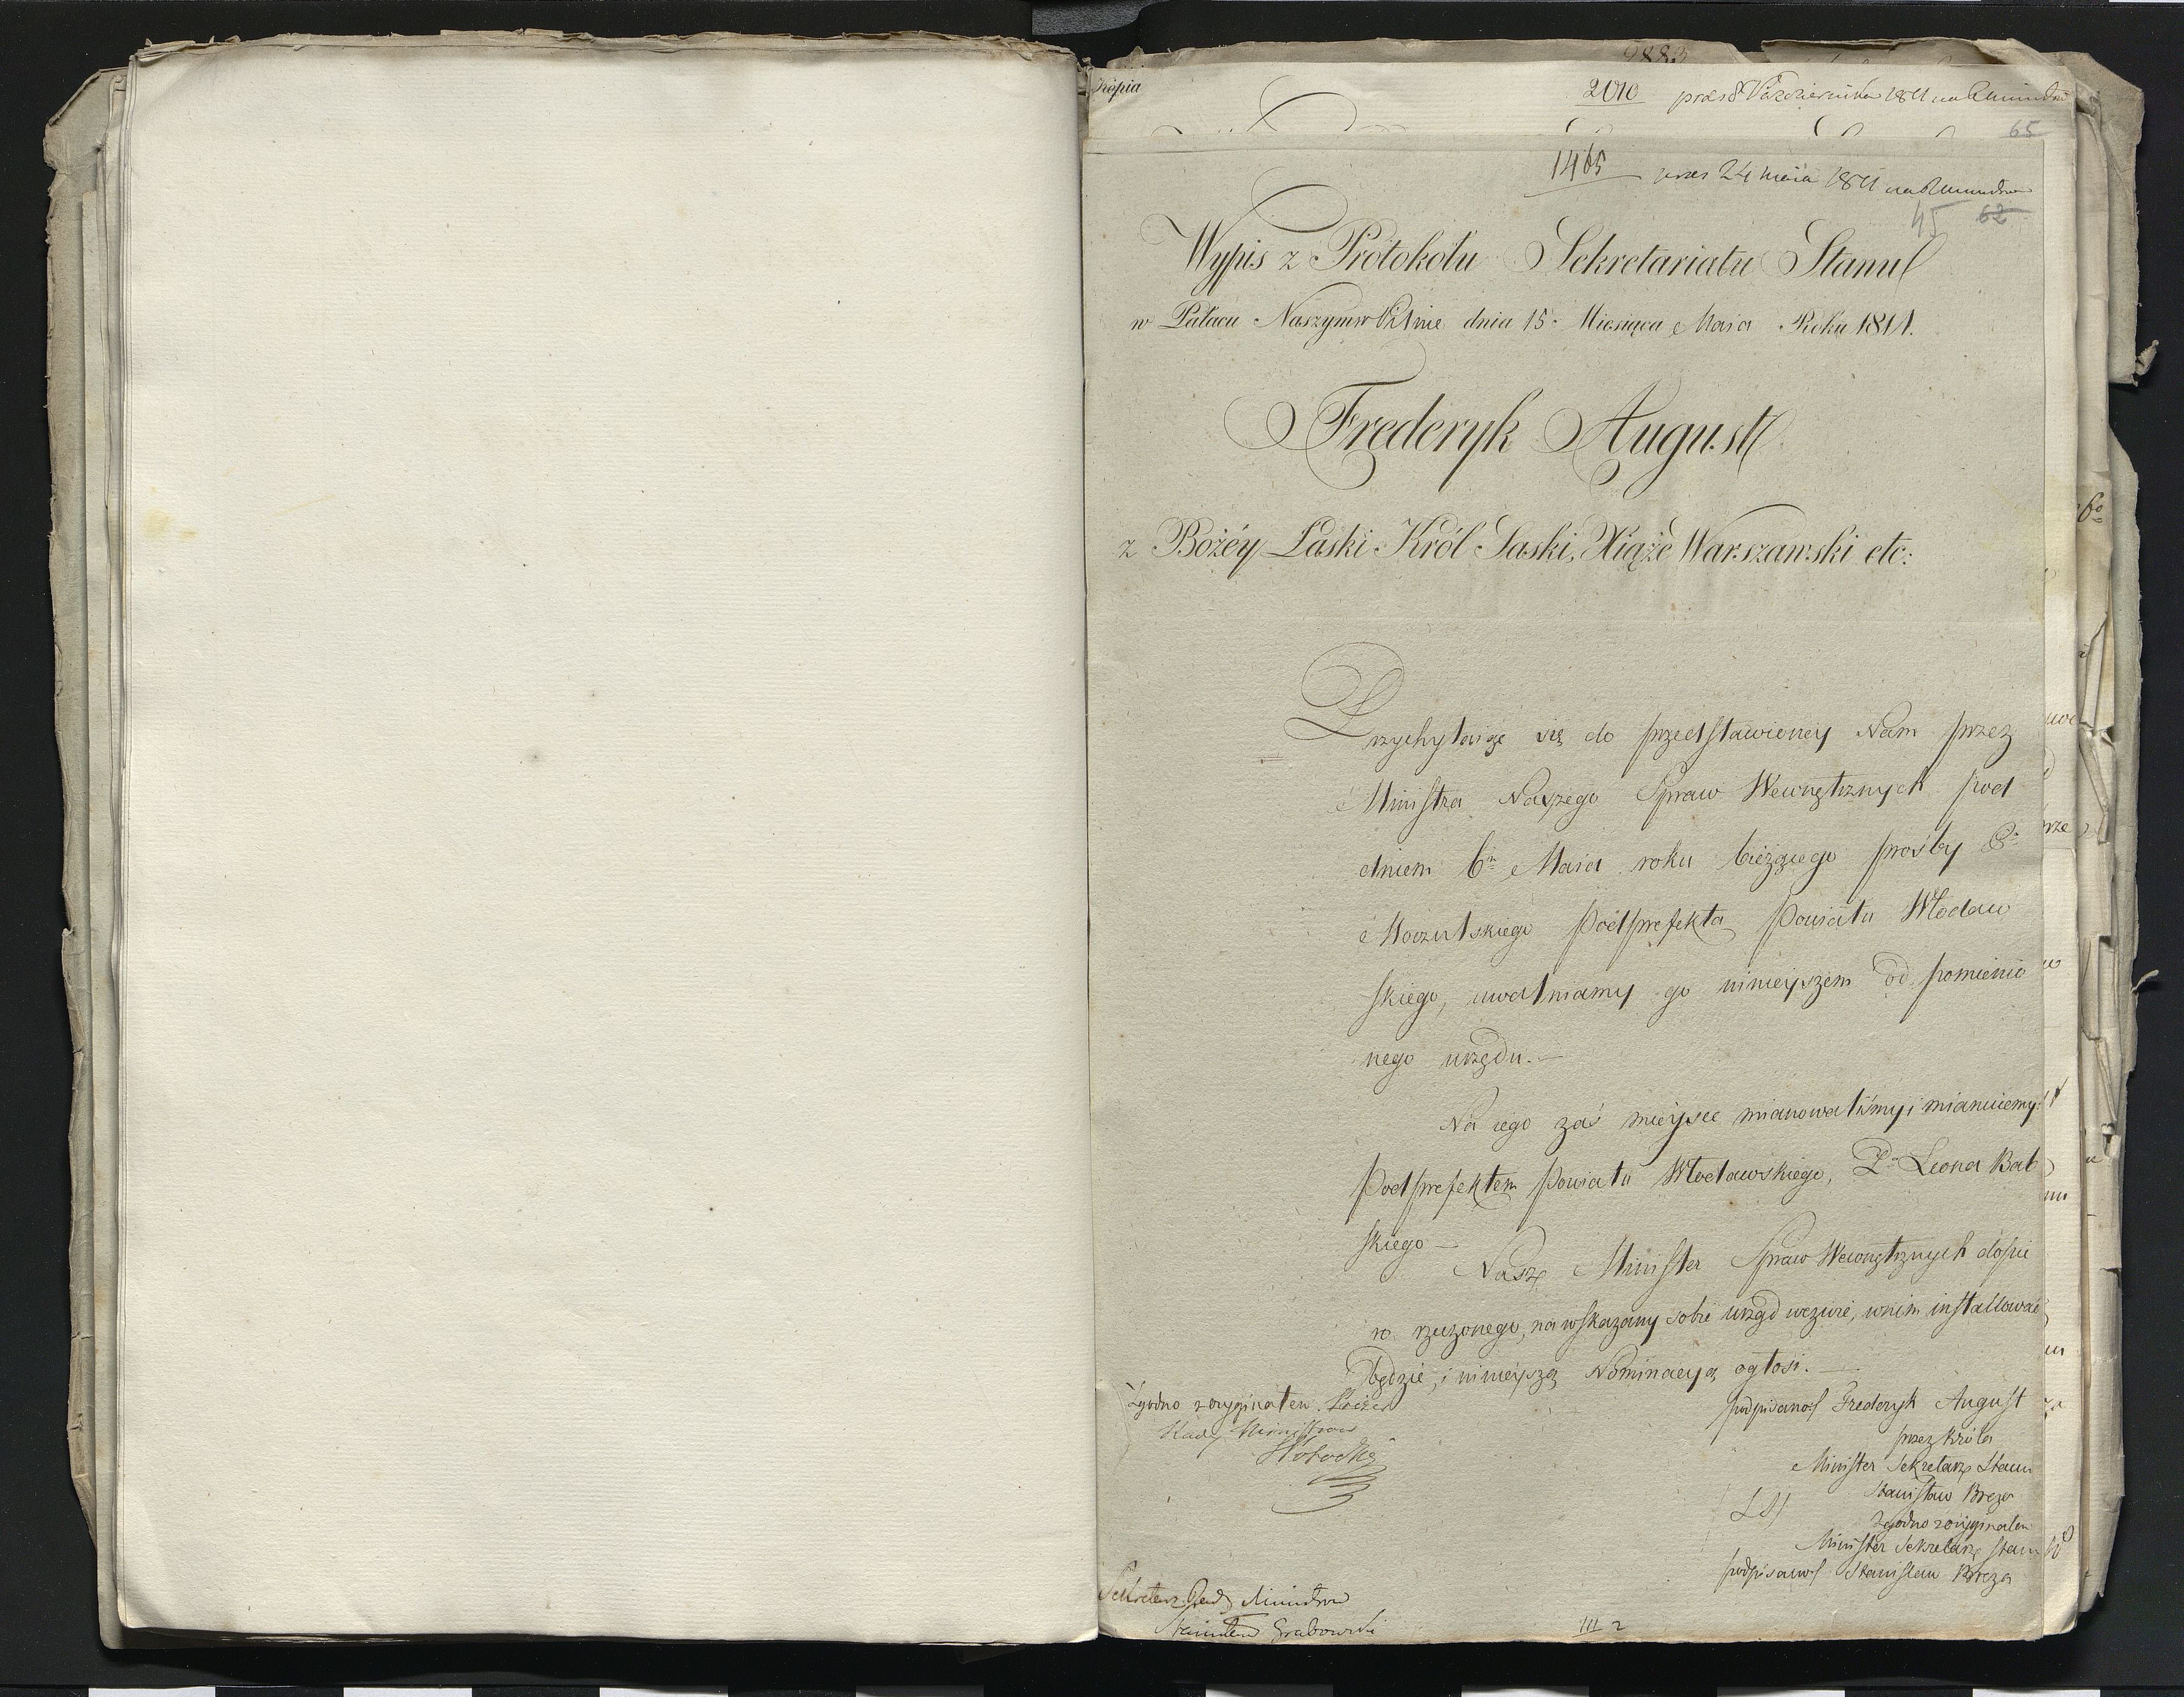 9883
Kopia
2010 praes 8 Października 1811 na R Ministrów
65
1465 praes 24 maia 1811 na R Ministrów
45 62
Wypis z Protokołu Sekretariatu Stanu
w Pałacu Naszym w Pilnie dnia 15. Miesiąca Maia Roku 1811.
Frederyk August
z Bożéy Łaski Król Saski, Xiąże Warszawski etc:
Przychylaiąc się do przedstawioney Nam przez
Ministra Naszego Spraw Wewnętrznych pod
dniem 6m Maia roku bieżącego prośby P.
Moczulskiego Podprefekta Powiatu Włodaw
skiego, uwalniamy go ninieyszem od pomienio
nego urzędu.—
Na iego zaś mieysce mianowaliśmy i mianuiemy
Podprefektem Powiatu Włodawskiego, P. Leona Bab
skiego —
Nasz Minister Spraw Wewnętrznych dopie
ro rzeczonego, na wskazany sobie urząd wezwie, w nim installować
będzie, i ninieyszą Nominacyą ogłosi. —
podpisano/ Frederyk August
przez Króla
Minister Sekretarz Stanu
Stanisław Breza
/LS/
Zgodno z oryginałem
Minister Sekretarz Stanu
podpisano/ Stanisław Breza
Zgodno z oryginałem
Rady Ministrów
Sekretarz Rady Ministrów
Stanisław Grabowski
III 2